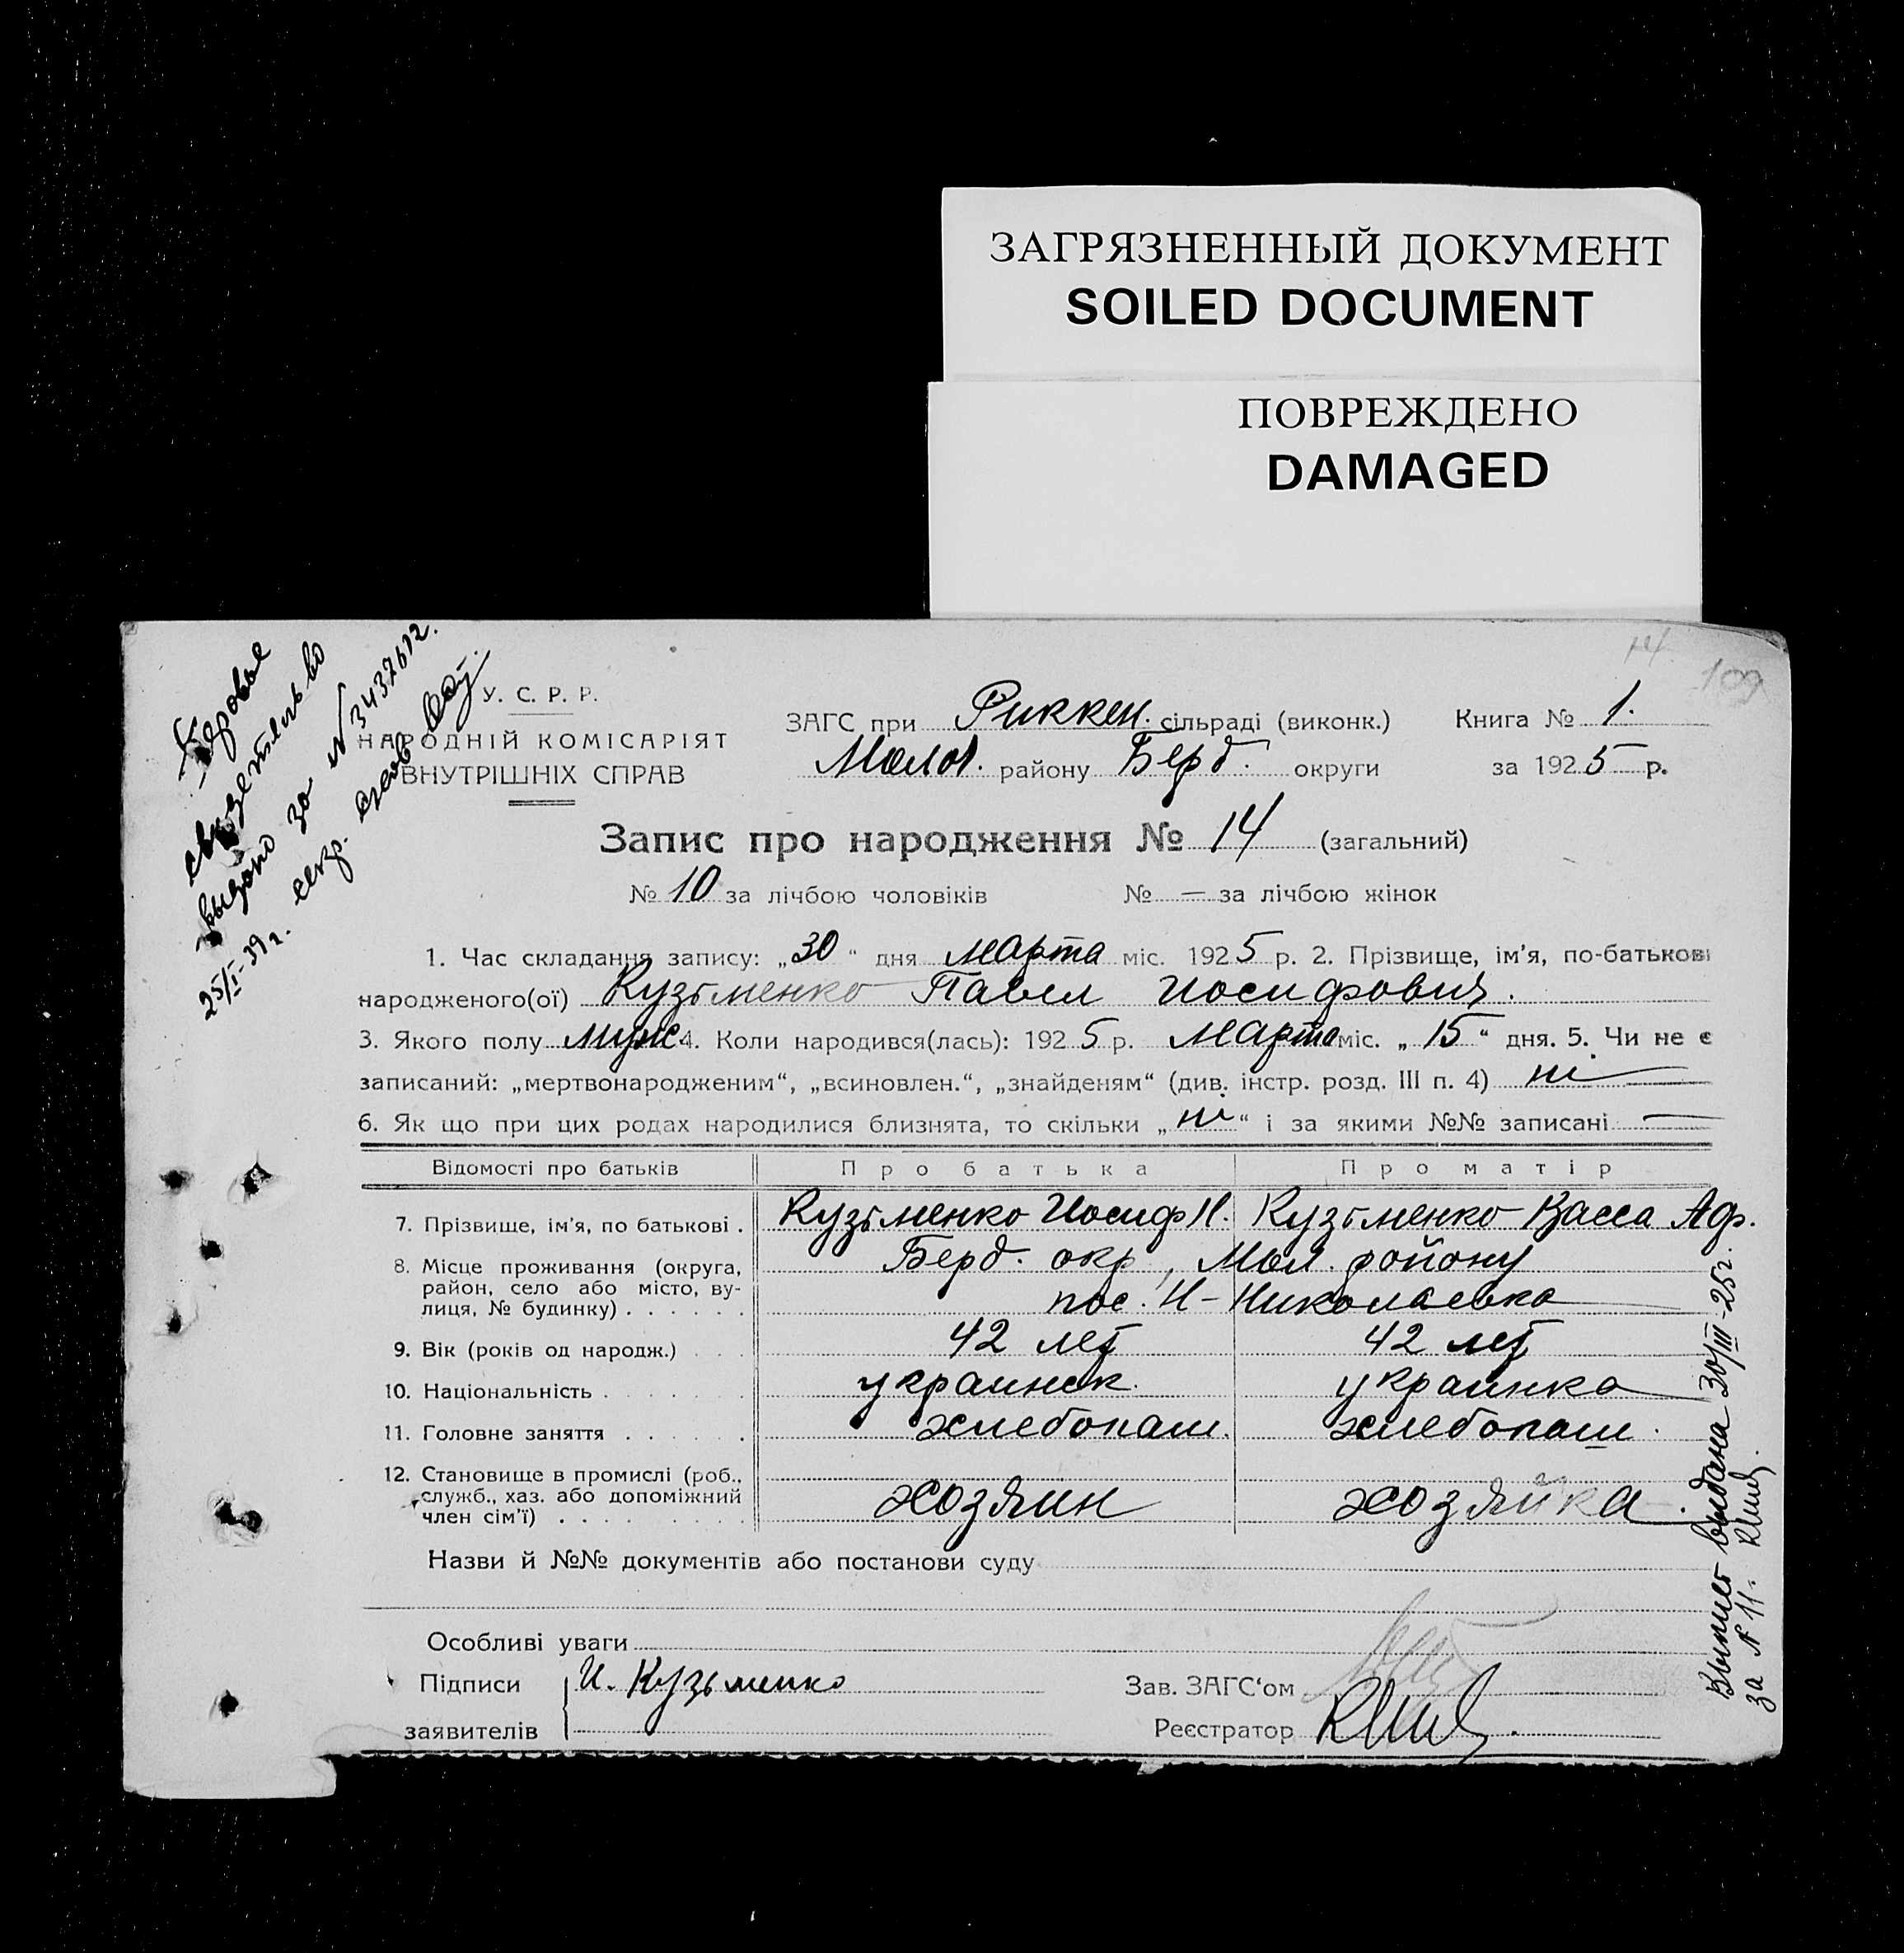 ЗАГРЯЗНЕННЫЙ ДОКУМЕНТ
SOILED DOCUMENT
ПОВРЕЖДЕНО
DAMAGED
14.
109
выдано за № 3437612.
25/I-39 г. секр.
У. С. Р. Р.
НАРОДНІЙ КОМІСАРІЯТ
ВНУТРІШНІХ СПРАВ
ЗАГС при Риккен. сільраді (виконк.) Книга № 1.
Молоч. району Берд. округи за 1925 р.
Запис про народження № 14 (загальний)
№ 10 за лічбою чоловіків № — за лічбою жінок
1. Час складання запису: „30“ дня марта міс. 1925 р. 2. Прізвище, ім’я, по-батькові
народженого(ої) Кузьменко Павел Иосифович.
3. Якого полу муж. 4. Коли народився(лась): 1925 р. марта міс. „15“ дня. 5. Чи не є
записаний: „мертвонародженим“, „всиновлен.“, „знайденям“ (див. інстр. розд. III п. 4) ні
6. Як що при цих родах народилися близнята, то скільки „ні“ і за якими №№ записані —
Відомості про батьків Про батька Про матір
7. Прізвище, ім’я, по батькові . Кузьменко Иосиф И. Кузьменко Васса Аф.
8. Місце проживання (округа, район, село або місто, вулиця, № будинку) . . . . . . Берд. окр, Мол. району
пос. Н-Николаевка
9. Вік (років од народж.) . . . 42 лет 42 лет
10. Національність . . . . . . . украинск. украинка
11. Головне заняття . . . . . . хлебопаш. хлебопаш.
12. Становище в промислі (роб., служб., хаз. або допоміжний член сім’ї) . . . . . . . . . хозяин хозяйка.
Назви й №№ документів або постанови суду
Особливі уваги
Підписи И. Кузьменко Зав. ЗАГС‘ом
заявителів Реєстратор
выдана 30/III-25 г.
за № 11.